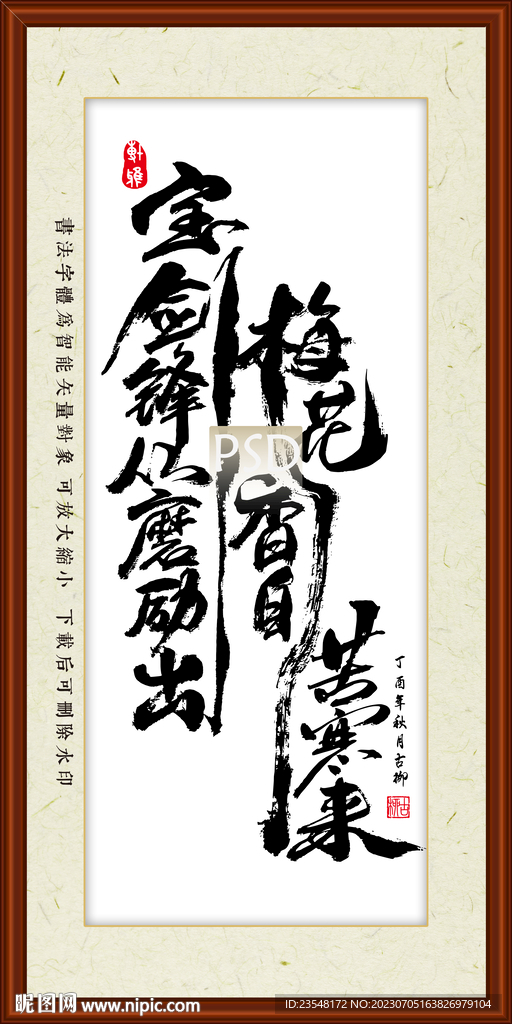 軒雅
宝剑锋从磨励出
梅花香自
苦寒来
丁酉年秋月古柳
古柳
書法字體為智能矢量對象 可放大縮小 下載后可刪除水印
PSD
昵图网 www.nipic.com
ID:23548172 NO:20230705163826979104